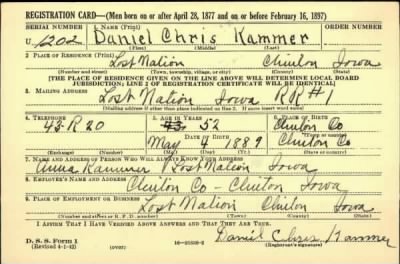 REGISTRATION CARD—(Men born on or after April 28, 1877 and on or before February 16, 1897)
SERIAL NUMBER 1. NAME (Print) ORDER NUMBER
U 1202 Daniel Chris Kammer
(First) (Middle) (Last)
2. PLACE OF RESIDENCE (Print)
Lost Nation Clinton Iowa
(Number and street) (Town, township, village, or city) (County) (State)
[THE PLACE OF RESIDENCE GIVEN ON THE LINE ABOVE WILL DETERMINE LOCAL BOARD
JURISDICTION; LINE 2 OF REGISTRATION CERTIFICATE WILL BE IDENTICAL]
3. MAILING ADDRESS
Lost Nation Iowa RR#1
[Mailing address if other than place indicated on line 2. If same insert word same]
4. TELEPHONE 5. AGE IN YEARS 6. PLACE OF BIRTH
43-R20 52 Clinton Co
DATE OF BIRTH (Town or county)
May 4 1889 Clinton Co
(Exchange) (Number) (Mo.) (Day) (Yr.) (State or country)
7. NAME AND ADDRESS OF PERSON WHO WILL ALWAYS KNOW YOUR ADDRESS
Anna Kammer Lost Nation Iowa
8. EMPLOYER'S NAME AND ADDRESS
Clinton Co - Clinton Iowa
9. PLACE OF EMPLOYMENT OR BUSINESS
Lost Nation Clinton Iowa
(Number and street or R. F. D. number) (Town) (County) (State)
I AFFIRM THAT I HAVE VERIFIED ABOVE ANSWERS AND THAT THEY ARE TRUE.
D. S. S. Form 1
(Revised 4-1-42) (over) Daniel Chris Kammer
(Registrant's signature)